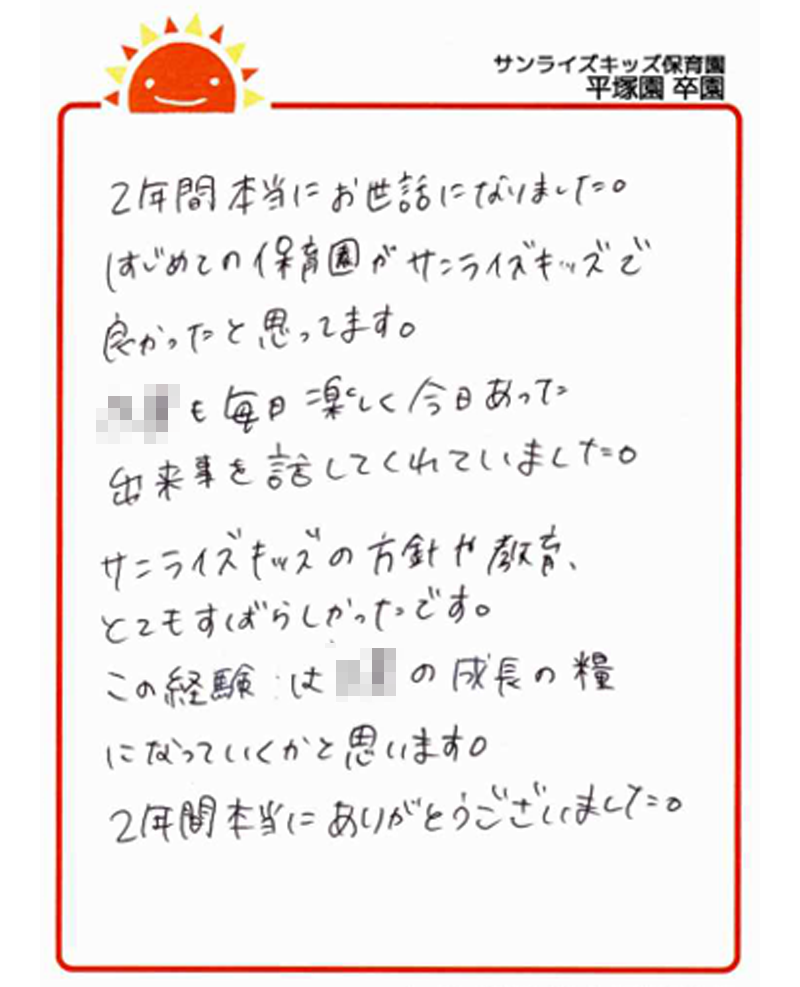 サンライズキッズ保育園
平塚園 卒園
2年間本当にお世話になりました。
はじめての保育園がサンライズキッズで
良かったと思ってます。
も毎日楽しく今日あった
出来事を話してくれていました。
サンライズキッズの方針や教育、
とてもすばらしかったです。
この経験は の成長の糧
になっていくかと思います。
2年間本当にありがとうございました。